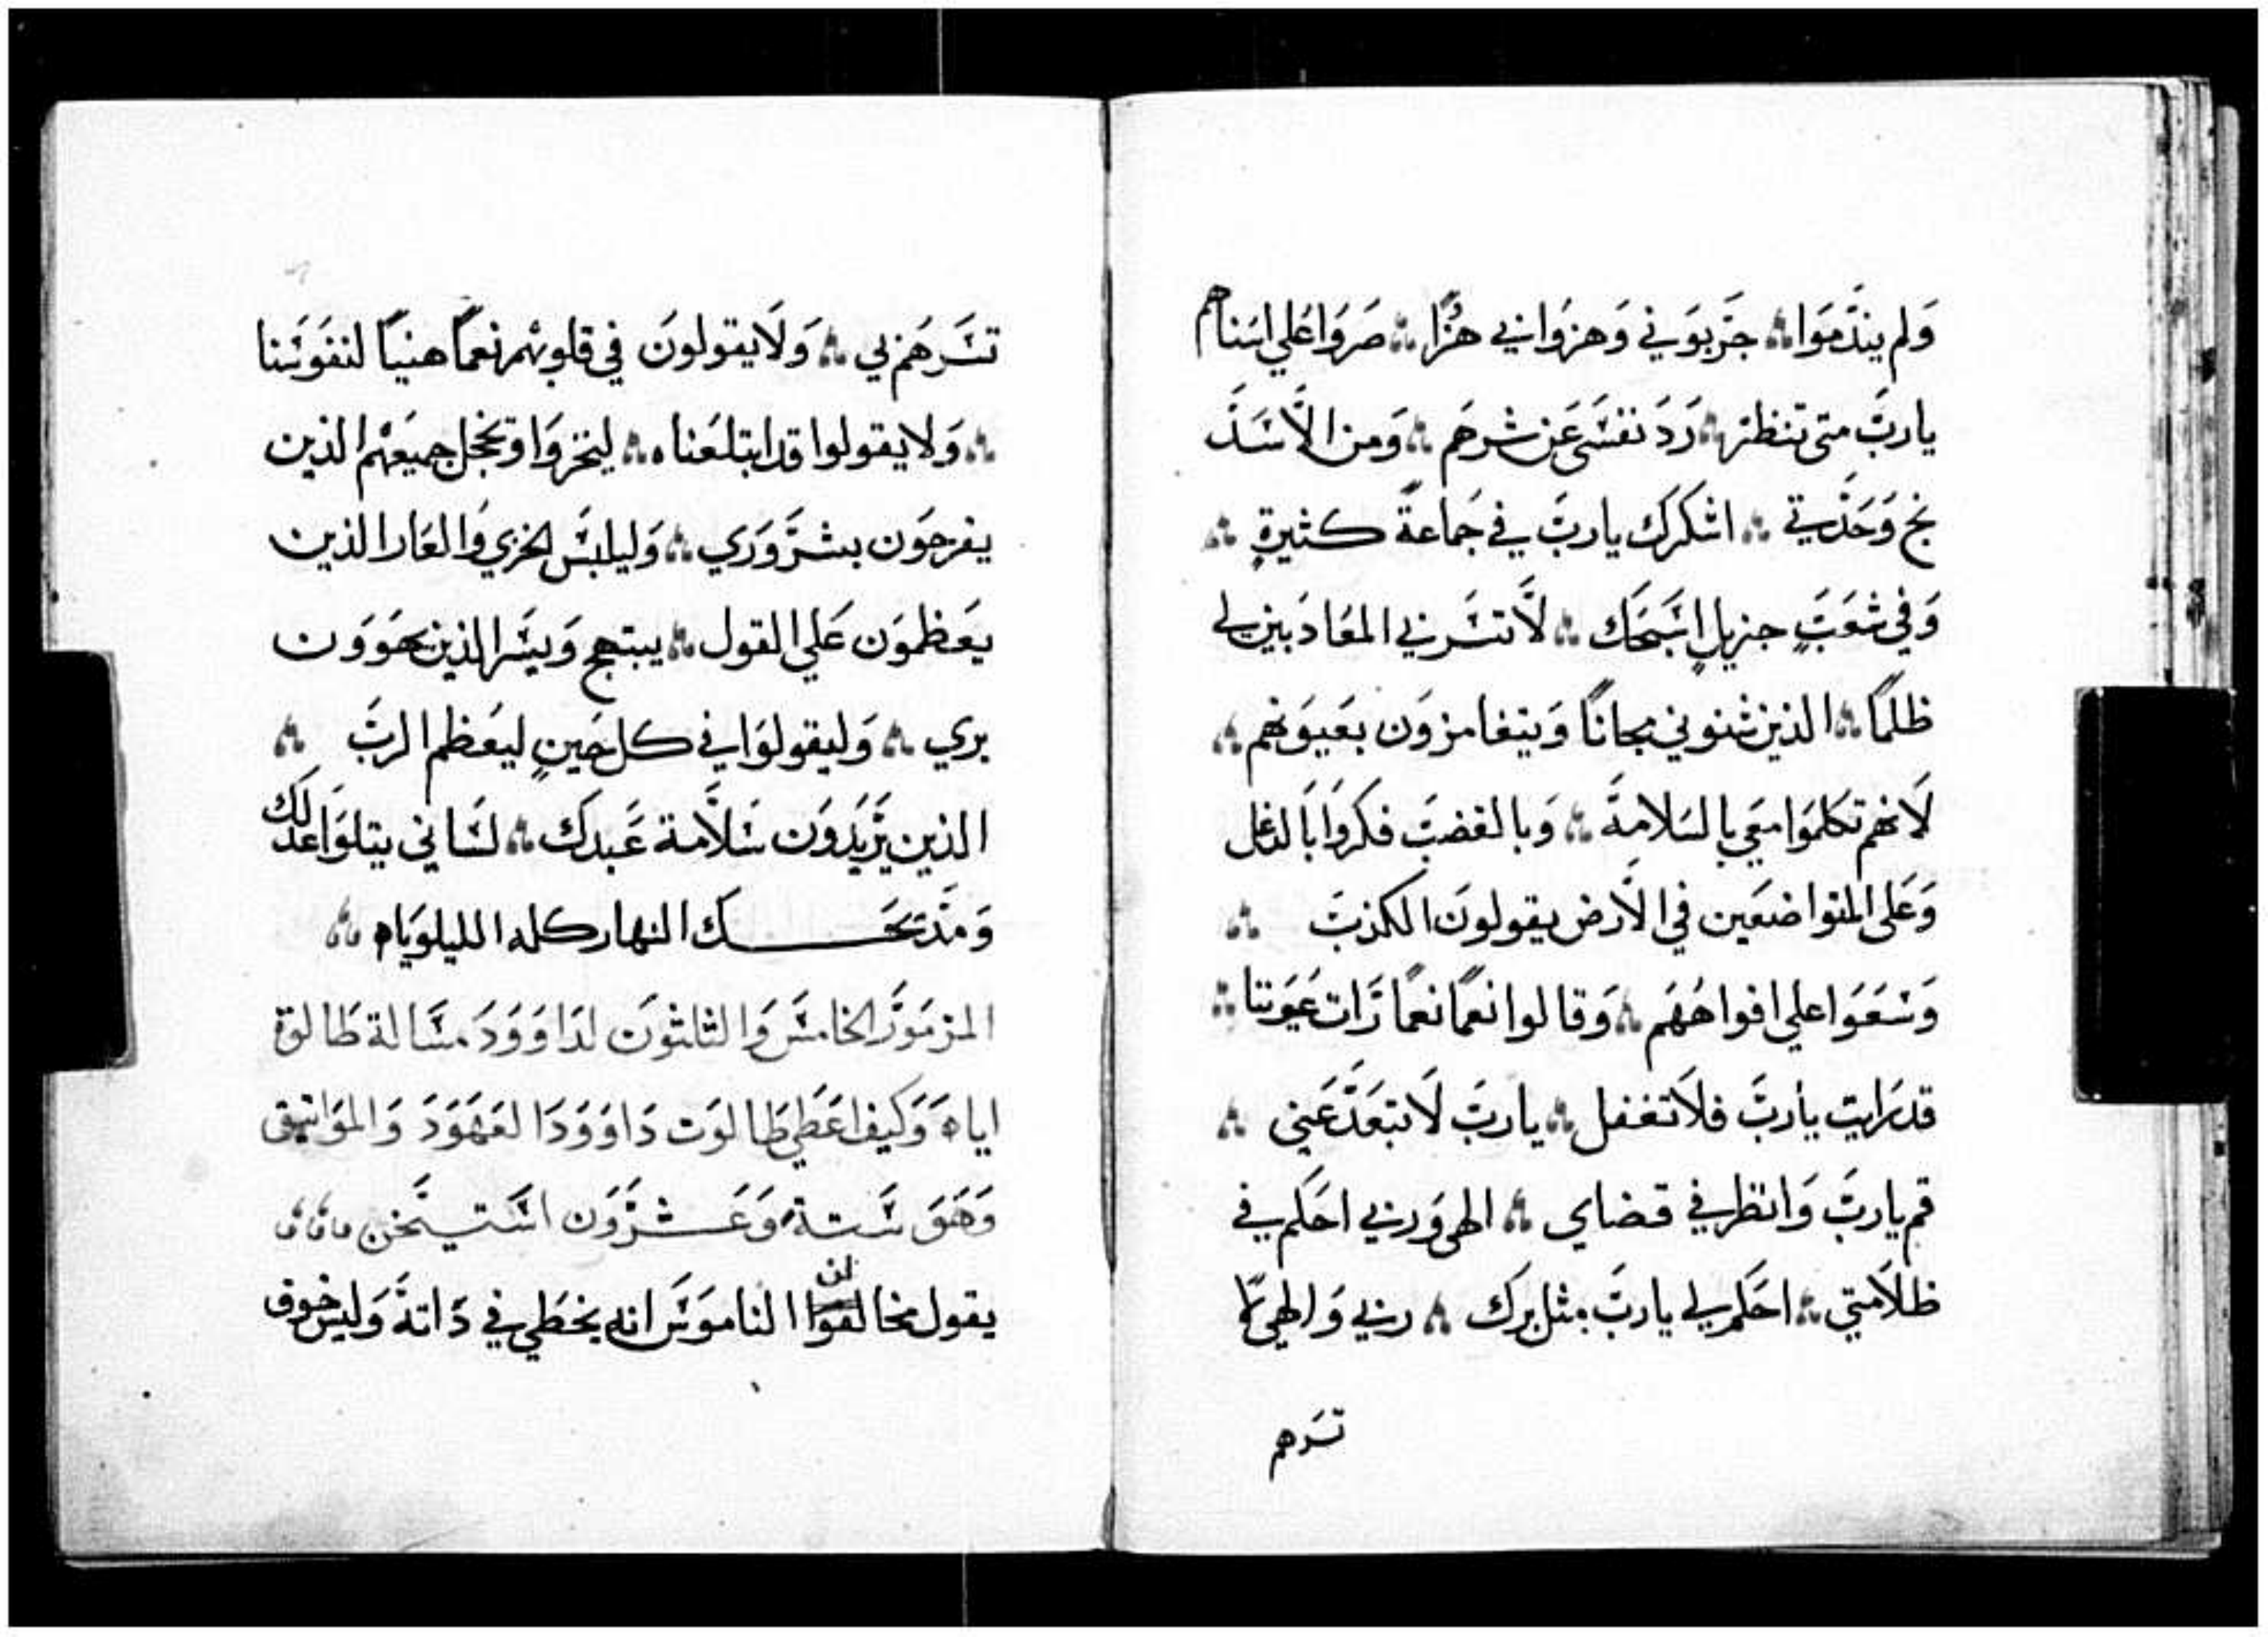 ولم يندموا جربوني وهزوا بي هزا صروا علي اسناهم
يارب متى تنظر رد نفسي عن شرهم ومن الاسد
نج وحدتي اشكرك يارب في جماعة كثيرة
وفي شعب جزيل اسبحك لا تسر بي المعادبين لي
ظلما الذين شنوني مجانا ويتغامزون بعيونهم
لانهم تكلموا معي بالسلامة وبالغضب فكروا بالدغل
وعلى المتواضعين في الارض يقولون الكذب
وسعوا علي افواههم وقالوا نعما نعما رات عيوننا
قد رايت يارب فلا تغفل يارب لا تبعد عني
قم يارب وانظر في قضاي الهي وربي احكم في
ظلامتي احكم لي يارب مثل برك ربي والهي لا
تسرهم
تسرهم بي ولا يقولون في قلوبهم نعما هنيا لنفوسنا
ولا يقولوا قد ابتلعناه ليخزوا وتخجل جميعهم الذين
يفرحون بشروري وليلبس الخزي والعار الذين
يعظمون علي القول يبتهج ويسر الذين يهوون
بري وليقولوا في كل حين ليعظم الرب
الذين يريدون سلامة عبدك لساني يتلوا عدلك
ومدتحك النهار كله الليلوياه
المزمور الخامس والثلثون لداوود مسالة طالوة
اياه وكيف اعطي طالوت داوود العهود والمواثيق
وهو ستة وعشرون استيخن
يقول مخالفوا الناموس انه يخطي في داته وليس خوف